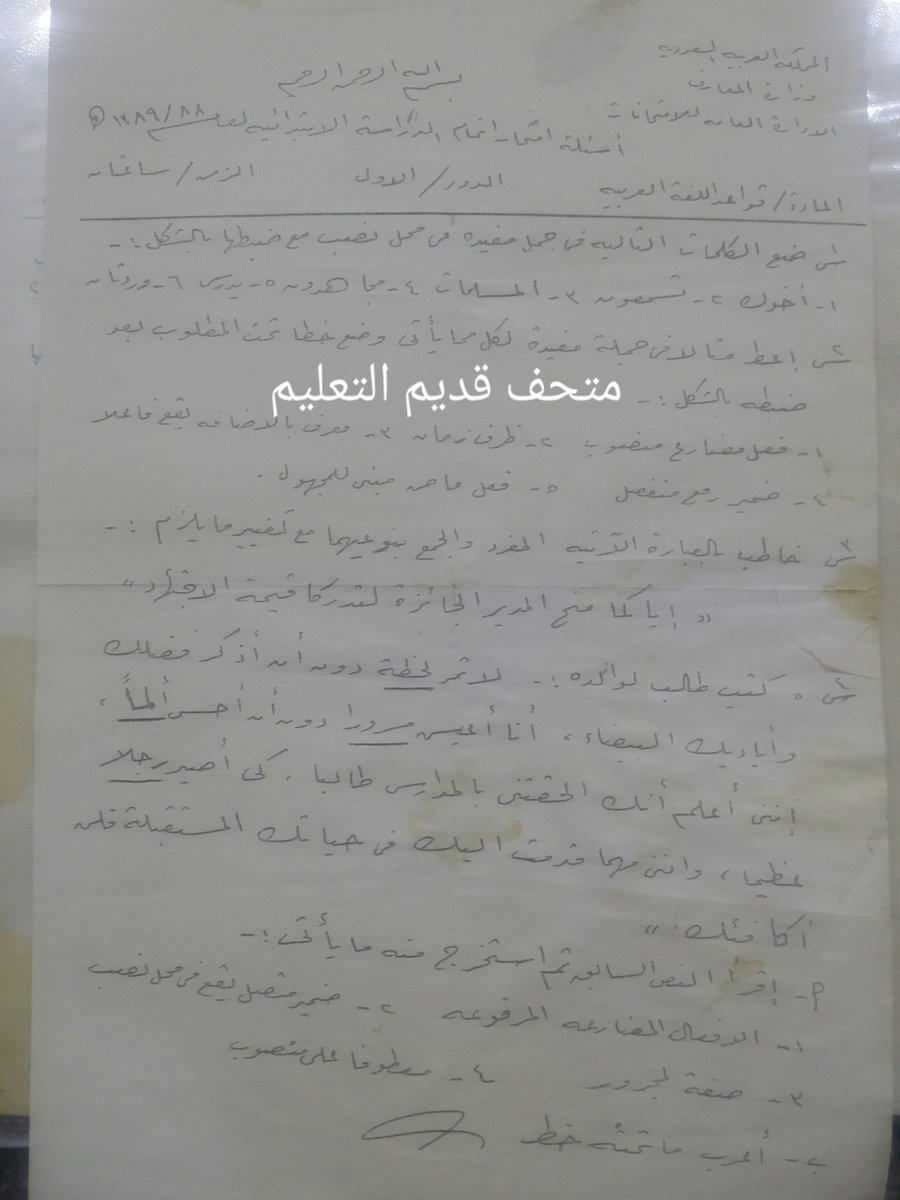 المملكة العربية السعودية
وزارة المعارف
الادارة العامة للامتحانات
بسم الله الرحمن الرحيم
أسئلة امتحان اتمام الدراسة الابتدائية لعام ٨٨/١٣٨٩ هـ
المادة/ قواعد اللغة العربية الدور/ الاول الزمن/ ساعتان
س١ ضع الكلمات التالية في جمل مفيدة في محل نصب مع ضبطها بالشكل :-
١- أخوك ٢- تسمعون ٣- المسلمات ٤- مجاهدون ٥- يدرس ٦- وردتان
س٢ إعط مثالا في جملة مفيدة لكل مما يأتى وضع خطا تحت المطلوب بعد
ضبطه بالشكل :-
متحف قديم التعليم
١- فعل مضارع منصوب ٢- ظرف زمان ٣- معرف بالاضافه يقع فاعلا
٤- ضمير رفع منفصل ٥- فعل ماض مبنى للمجهول .
س٣ خاطب بالعبارة الآتيه المفرد والجمع بنوعيهما مع تغيير ما يلزم :-
" إياكما منح المدير الجائزة لتدركا قيمة الاجتهاد "
س٤ " كتب طالب لوالده :- لا تمر لحظة دون أن أذكر فضلك
وأياديك البيضاء ، أنا أعيش مسرورا دون أن أحس ألماً ،
إننى أعلم أنك الحقتنى بالمدارس طالبا ، كى أصير رجلا
عظيما ، واننى مهما قدمت اليك فى حياتك المستقبلة فلن
أكافئك "
أ- إقرأ النص السابق ثم استخرج منه ما يأتى :-
١- الافعال المضارعه المرفوعه ٢- ضمير متصل يقع فى محل نصب
٣- صفة لمجرور ٤- معطوفا على منصوب
ب- أعرب ما تحته خط